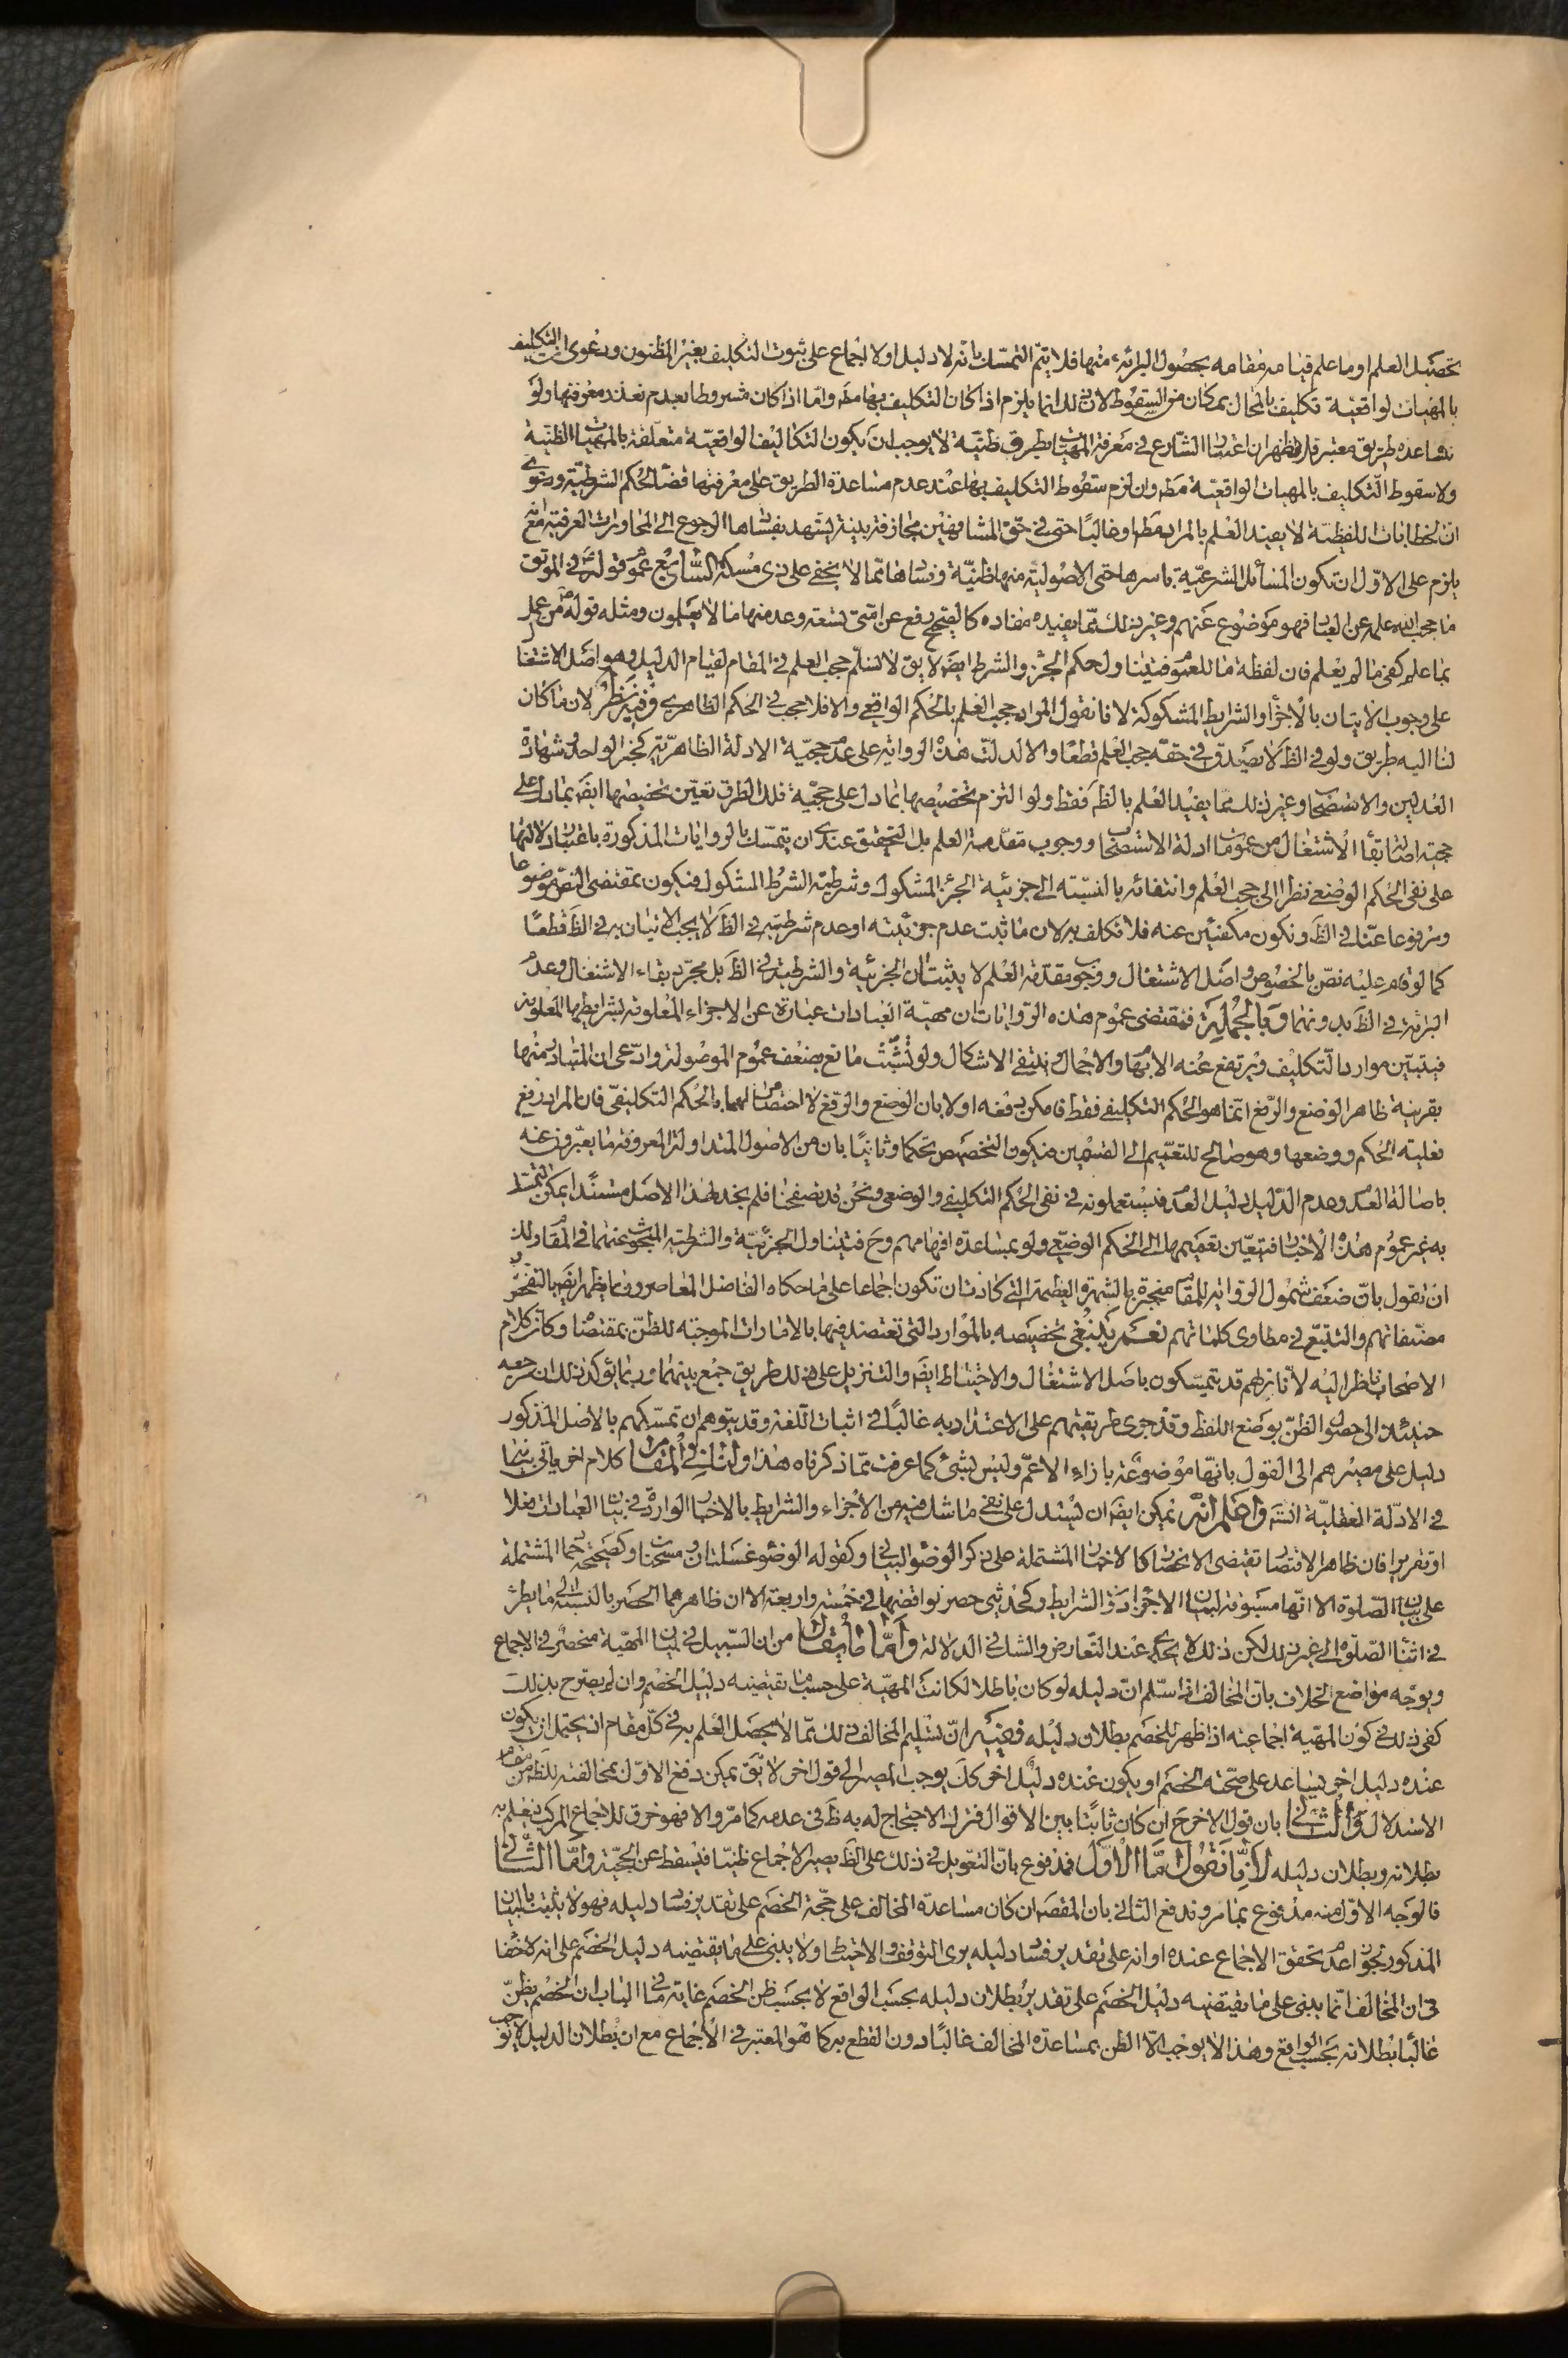 تحصيل العلم او ما علم قيامه مقامه بحصول البرائة منها فلا يتم التمسك بانه لا دليل اولا اجماع على ثبوت التكليف بغير المظنون ودعوى ان التكليف
بالمهيات الواقعية تكليف بالمحال بمكان من السقوط لان ذلك انما يلزم اذا كان التكليف بها مطه واما اذا كان مشروطا بعدم تعذر معرفتها ولو
بمساعدة طريق معتبر فلا فظهر ان اعتبار الشارع في معرفة المهيات بطرق ظنية لا يوجب ان يكون التكاليف الواقعية متعلقة بالمهيات الظنية
ولا سقوط التكليف بالمهيات الواقعية مطه وان لزم سقوط التكليف بها عند عدم مساعدة الطريق على معرفتها قضاء لحكم الشرطية ودعوى
ان الخطابات اللفظية لا يفيد العلم بالمراد مطه او غالبا حتى في حق المشافهين مجازفة بينة يشهد بفسادها الرجوع الى المحاورات العرفية مع انه
يلزم على الاول ان تكون المسائل الشرعية باسرها حتى الاصولية منها ظنية وفسادها مما لا يخفى على ذي مسكة السابع عموم قوله في الموثق
ما حجب الله علمه عن العباد فهو موضوع عنهم وغير ذلك مما يفيد مفاده كالصحيح رفع عن امتي تسعة وعد منها ما لا يعلمون ومثله قوله من عمل
بما علم كفى ما لم يعلم فان لفظة ما للعموم فيتناول حكم الجزء والشرط ايضه لا يق لا نسلم حجب العلم في المقام لقيام الدليل وهو اصل الاشتغال
على وجوب الاتيان بالاجزاء والشرايط المشكوكة لانا نقول المراد حجب العلم بالحكم الواقعي والا فلا حجب في الحكم الظاهري وفيه نظر لان ما كان
لنا اليه طريق ولو في الظ لا يصدق في حقه حجب العلم قطعا والا لدلت هذه الرواية على عدم حجية الادلة الظاهرية كخبر الواحد وشهادة
العدلين والاستصحاب وغير ذلك مما يفيد العلم بالظ فقط ولو التزم تخصيصها بما دل على حجية تلك الطرق تعين تخصيصها ايضه بما دل على
حجية اصالة بقاء الاشتغال من عمومات ادلة الاستصحاب ووجوب مقدمة العلم بل التحقيق عندي ان يتمسك بالروايات المذكورة باعتبار دلالتها
على نفي الحكم الوضعي نظرا الى حجب العلم وانتفائه بالنسبة الى جزئية الجزء المشكوك وشرطية الشرط المشكوك فيكون بمقتضى النص موضوعا
ومرفوعا عنا في الظ ونكون مكفيين عنه فلا تكلف به لان ما ثبت عدم جزئيته او عدم شرطيته في الظ لا يجب الاتيان به في الظ قطعا
كما لو قام عليه نص بالخصوص واصل الاشتغال ووجوب مقدمة العلم لا يثبتان الجزئية والشرطية في الظ بل مجرد بقاء الاشتغال وعدم
البرائة في الظ بدونهما وبالجملة فمقتضى عموم هذه الروايات ان مهية العبادات عبارة عن الاجزاء المعلومة بشرايطها المعلومة
فيتبين موارد التكليف ويرتفع عنه الابهام والاجمال وينتفي الاشكال ولو تشبث مانع بضعف عموم الموصولة وادعى ان المتبادر منها
بقرينة ظاهر الوضع والرفع انما هو الحكم التكليفي فقط فامكن دفعه اولا بان الوضع والرفع لا اختصاص لهما بالحكم التكليفي فان المراد رفع
فعلية الحكم ووضعها وهو صالح للتعميم الى القسمين فيكون التخصيص تحكما وثانيا بان من الاصول المتداولة المعروفة ما يعبرون عنه
باصالة العدم وعدم الدليل دليل العدم فيستعملونه في نفي الحكم التكليفي والوضعي ونحن قد تصفحنا فلم نجد لهذا الاصل مستندا يمكن التمسك
به غير عموم هذه الاخبار فيتعين تعميمها الى الحكم الوضعي ولو بمساعدة افهامهم وح فيتناول الجزئية والشرطية المبحوث عنهما في المقام ولك
ان تقول بان ضعف شمول الرواية للمقام منجبرة بالشهرة العظيمة التي كادت ان تكون اجماعا على ما حكاه الفاضل المعاصر وما يظهر ايضه بالتفحص
مصنفاتهم والتتبع في مطاوي كلماتهم نعم ينبغي تخصيصه بالموارد التي تعتضد فيها بالامارات الموجبة للظن بمقتضاها وكان كلام
الاصحاب ناظر اليه لانا نراهم قد يتمسكون باصل الاشتغال والاحتياط ايضه والتنزيل على ذلك طريق جمع بينهما وربما يؤكد ذلك ان مرجعه
حينئذ الى حصول الظن بوضع اللفظ وقد جرى طريقتهم على الاعتداد به غالبا في اثبات اللغة وقد يتوهم ان تمسكهم بالاصل المذكور
دليل على مصيرهم الى القول بانها موضوعة بازاء الاعم وليس بشئ كما عرفت مما ذكرناه هذا ولنا في المقام كلام اخر ياتي بيانها
في الادلة العقلية انش واعلم انه يمكن ايضه ان يستدل على نفي ما شك فيه من الاجزاء والشرايط بالاخبار الواردة في بيان العبادات فعلا
او تقريرا فان ظاهر الاقتصار تقتضي الانحصار كالاخبار المشتملة على ذكر الوضوء البياني وكقوله الوضوء غسلتان ومسحتان وكصحيحة حماد المشتملة
على بيان الصلوة الا انها مسوقة لبيان الاجزاء دون الشرايط وكحديثي حصر نواقضها في خمسة واربعة الا ان ظاهرهما الحصر بالنسبة الى ما يطرء
في اثناء الصلوة الى غير ذلك لكن ذلك لا يجدي عند التعارض والشك في الدلالة واما ما يقال من ان السبيل في بيان المهية منحصر في الاجماع
ويوجه مواضع الخلاف بان المخالف اذا سلم ان دليله لو كان باطلا لكانت المهية على حسب ما يقتضيه دليل الخصم وان لم يصرح بذلك
كفى ذلك في كون المهية اجماعية اذا ظهر للخصم بطلان دليله ففيه ان تسليم المخالف ذلك مما لا يحصل العلم به في كل مقام اذ يحتمل ان يكون
عنده دليل اخر يساعد على صحته الخصم او يكون عنده دليل اخر كك يوجب المصير الى قول اخر لا يق يمكن دفع الاول بمخالفته للظ من مقام
الاستدلال والثاني بان قول الاخر ح ان كان ثابتا بين الاقوال فترك الاحتجاج له به ظ في عدمه كما مر والا فهو خرق للاجماع المركب فيعلم به
بطلانه وبطلان دليله لانا نقول اما الاول فمدفوع بان التعويل في ذلك على الظ يصير الاجماع ظنيا فيسقط عن الحجية واما الثاني
فالوجه الاول منه مدفوع بما مر وقد دفع الثاني بان المقصه ان كان مساعدة المخالف على حجة الخصم على تقدير فساد دليله فهو لا يثبت بالبيان
المذكور لجواز عدم تحقق الاجماع عنده او انه على تقدير فساد دليله يرى التوقف او الاحتياط ولا يبنى على ما يقتضيه دليل الخصم على انه لا خفاء
في ان المخالف انما يبنى على ما يقتضيه دليل الخصم على تقدير بطلان دليله بحسب الواقع لا بحسب ظن الخصم غاية ما في الباب ان الخصم يظن
غالبا بطلانه بحسب الواقع وهذا لا يوجب الا الظن بمساعدة المخالف غالبا دون القطع به كما هو المعتبر في الاجماع مع ان بطلان الدليل لا يوجب